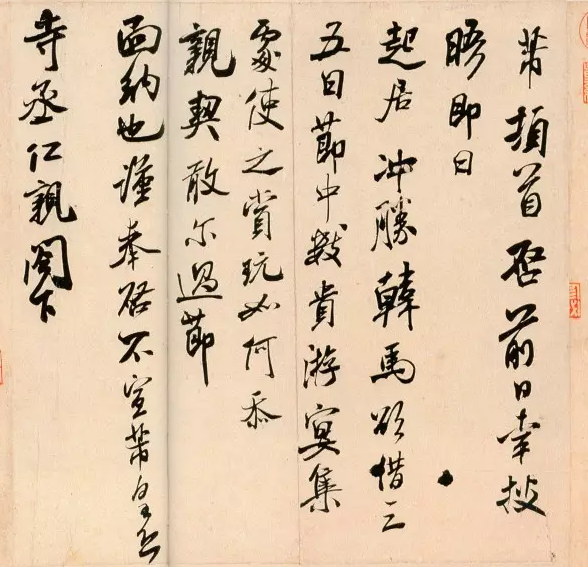 芾頓首啓前日幸披
晤即日
起居冲勝韓馬欲借三
五日節中數貴游宴集
處使之賞玩如何忝
親契敢尓過節
面納也謹奉啓不宣芾皇恐
寺丞仁親閣下